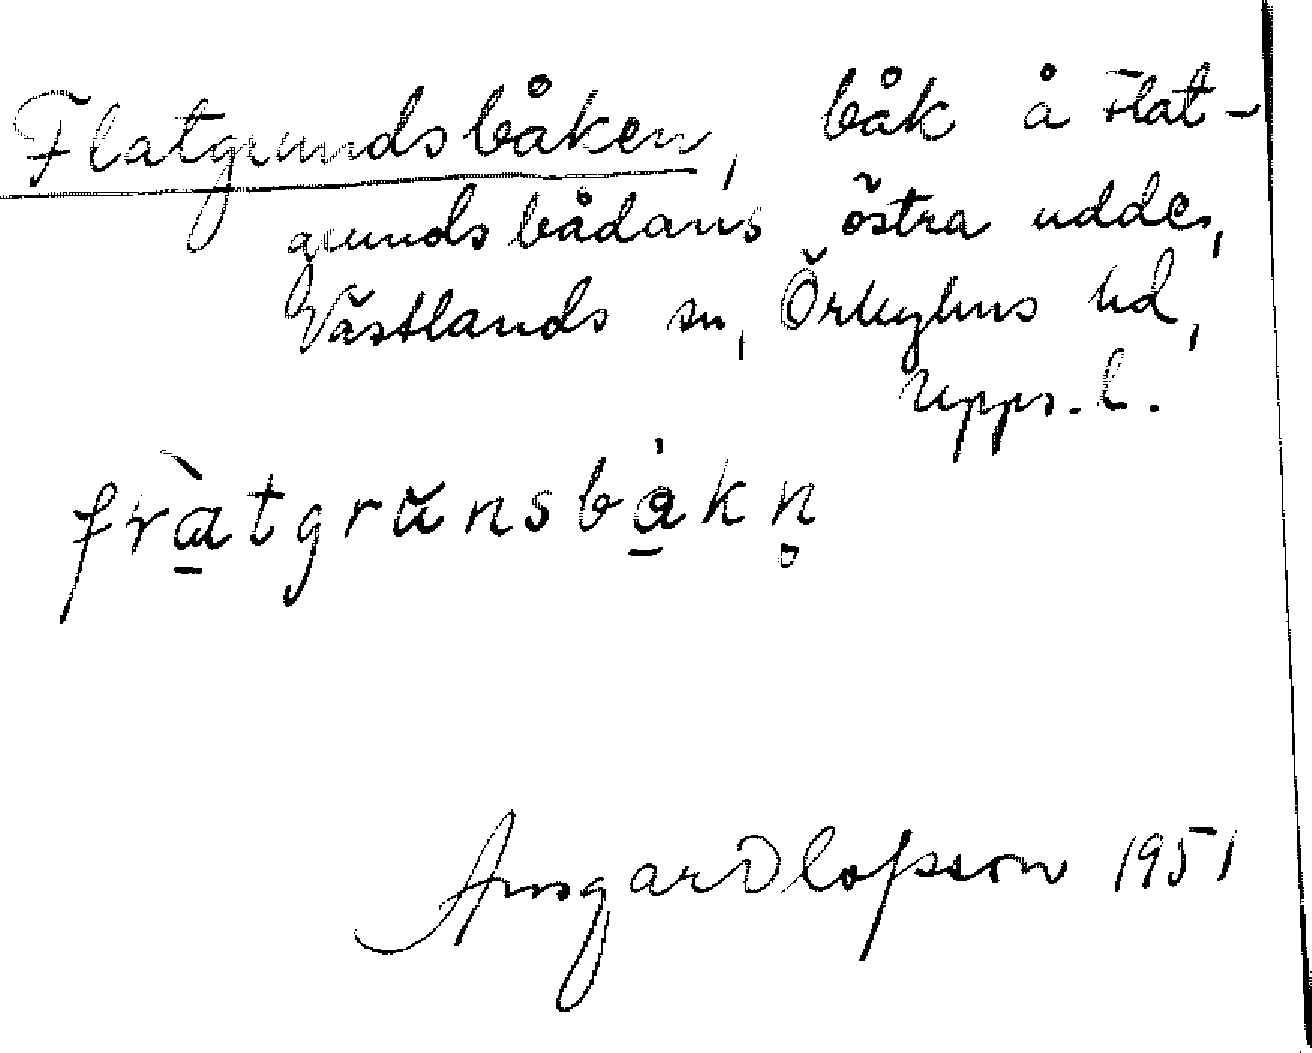 Flatgrundsbåken, båk å Flat-
grundsbådans östra udde,
Västlands sn, Örbyhus hd,
Upps. l.
Ansgar Olofsson 1951